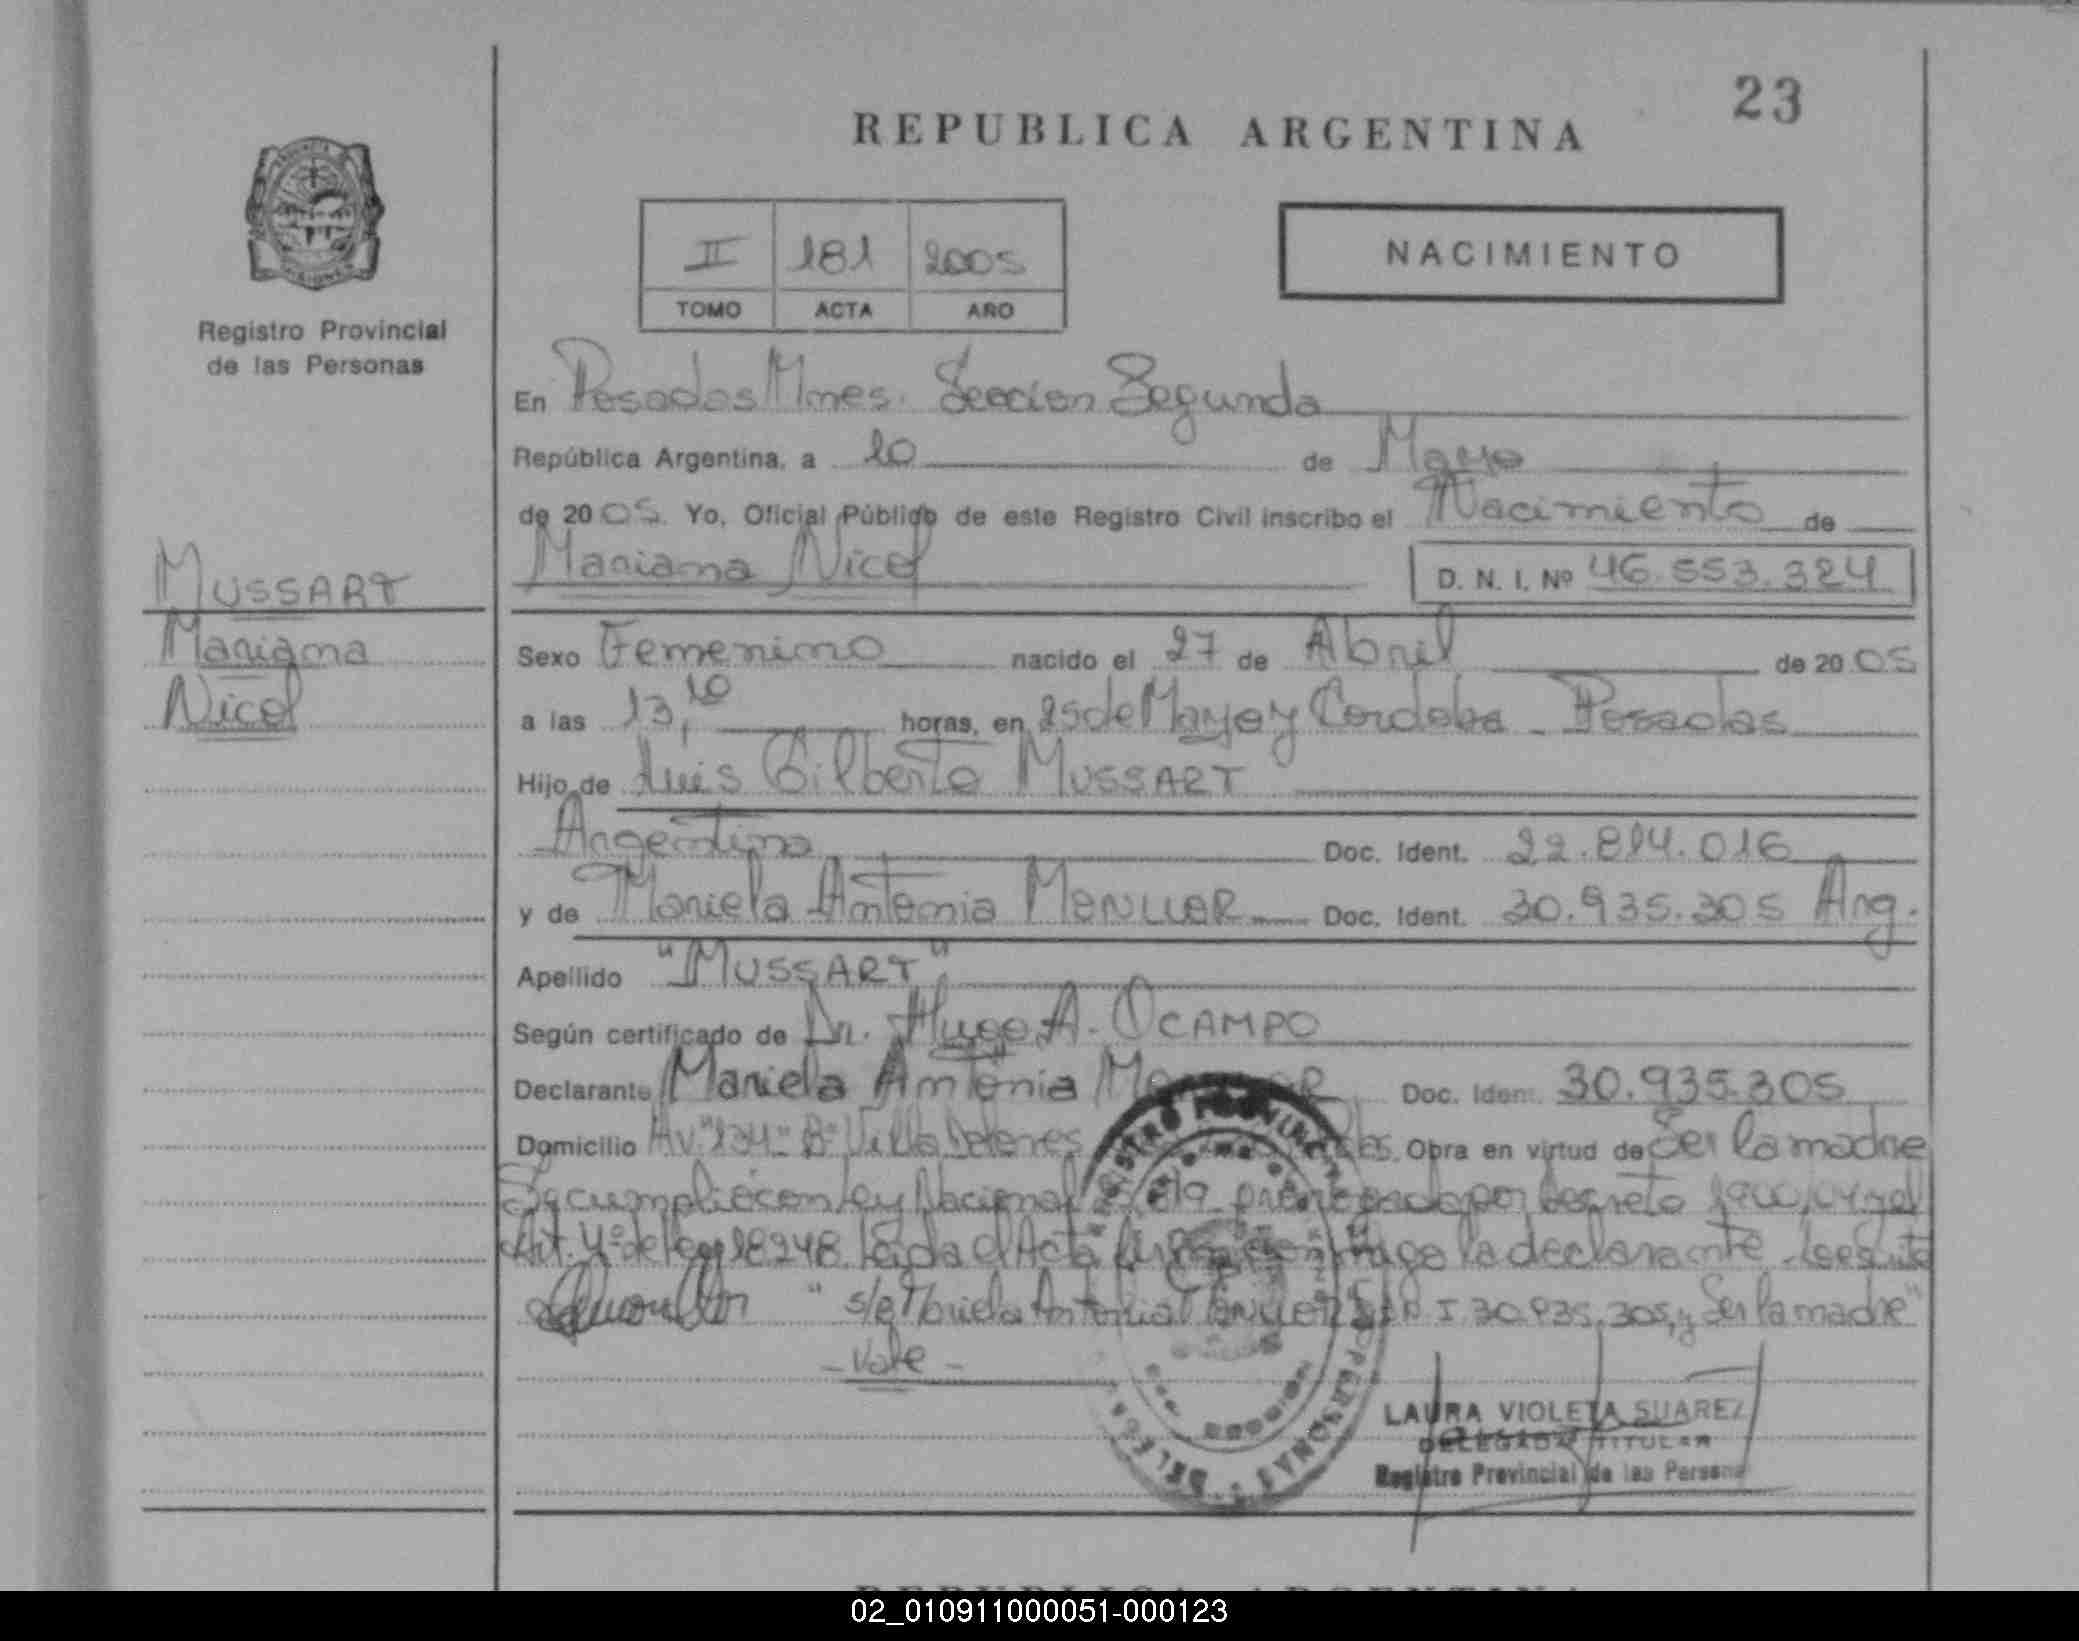 23
REPUBLICA ARGENTINA
II 181 2005
TOMO ACTA AÑO
NACIMIENTO
Registro Provincial
de las Personas
En Posadas Mnes. Seccion Segunda
República Argentina, a 10 de Mayo
de 2005. Yo, Oficial Público de este Registro Civil inscribo el Nacimiento de
Mariana Nicol D. N. I. Nº 46.553.324
MUSSART
Mariana
Nicol
Sexo Femenino nacido el 27 de Abril de 2005
a las 13,10 horas, en 25 de Mayo y Cordoba - Posadas
Hijo de Luis Gilberto MUSSART
Argentina Doc. Ident. 22.814.016
y de Mariela Antonia Doc. Ident. 30.935.305 Arg.
Apellido "MUSSART"
Según certificado de Dr. Hugo A. OCAMPO
Declarante Mariela Antonia Doc. Ident. 30.935.305
Domicilio Av. "134" Bº Villa Dolores Obra en virtud de Ser la madre
Se cumplió con Ley Nacional prorrogada por Decreto 1900/04 y el
Art. 4º de Ley 18.248. Leida el Acta la declarante
s/e Mariela Antonia 30.935.305, y Ser la madre"
- Vale -
LAURA VIOLETA SUAREZ
DELEGADA TITULAR
Registro Provincial de las Personas
REPUBLICA ARGENTINA
02_010911000051-000123